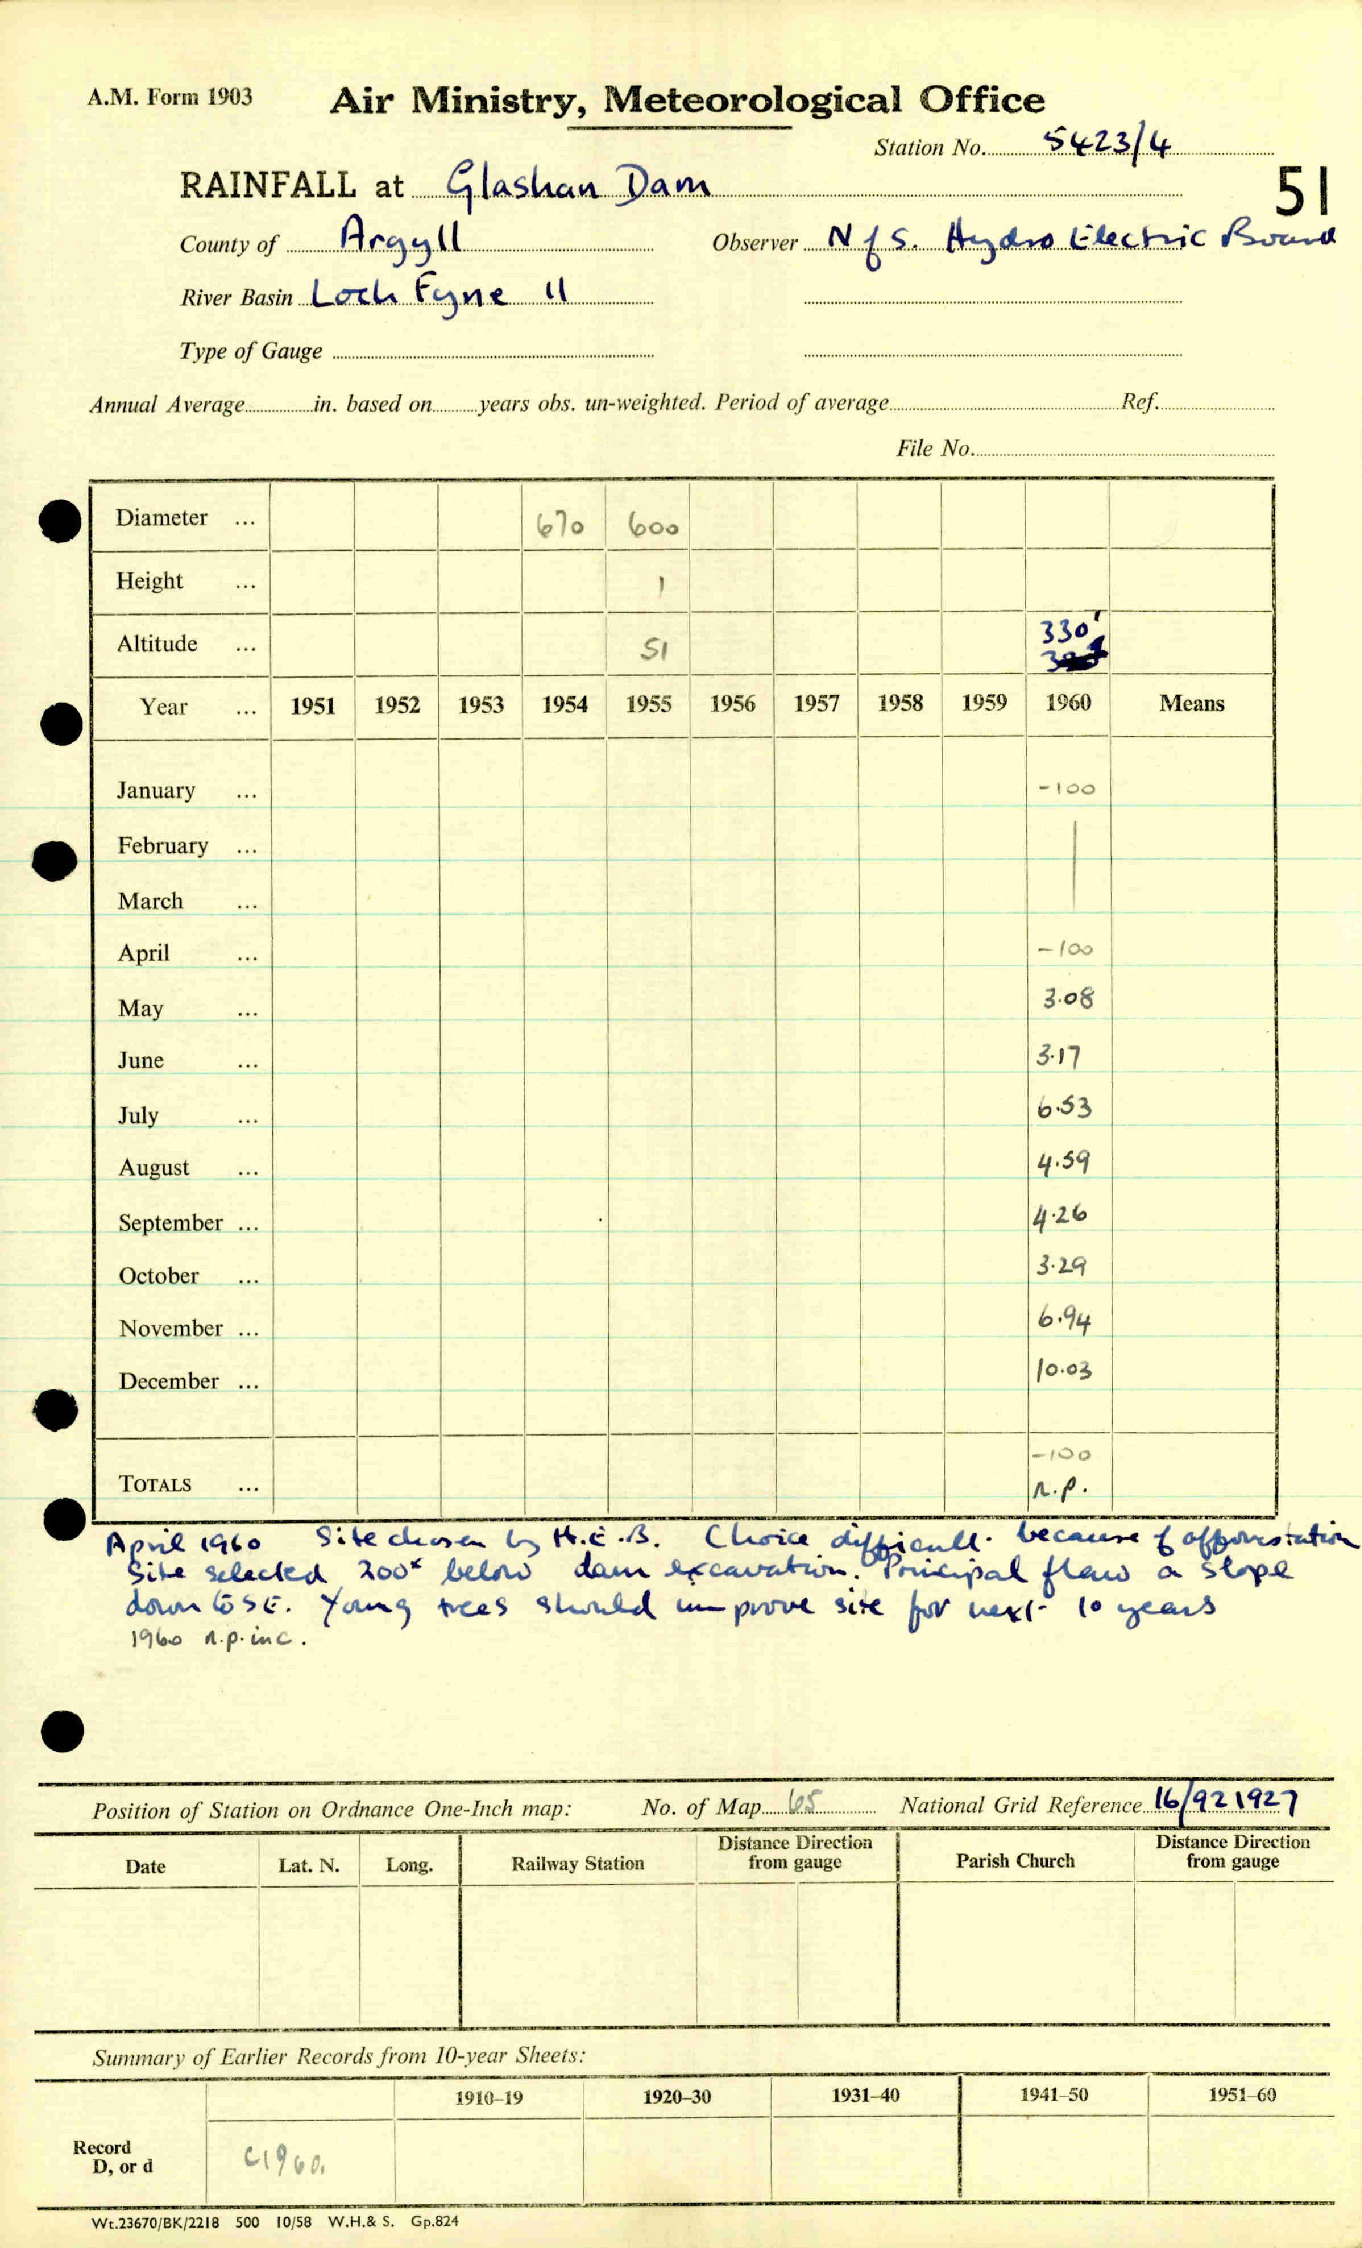 A.M. Form 1903 Air Ministry, Meteorological Office
Station No. 5423/4
RAINFALL at Glashan Dam 51
County of Argyll Observer N of S. Hydro Electric Board
River Basin Loch Fyne 11
Type of Gauge
Annual Average in. based on years obs. un-weighted. Period of average Ref.
File No.
Diameter ... 670 600
Height ... 1
Altitude ... 51 330'
Year ... 1951 1952 1953 1954 1955 1956 1957 1958 1959 1960 Means
January ... -100
February ...
March ...
April ... -100
May ... 3.08
June ... 3.17
July ... 6.53
August ... 4.59
September ... 4.26
October ... 3.29
November ... 6.94
December ... 10.03
-100
TOTALS ... n.p.
April 1960 Site chosen by H.E.B. Choice difficult because of afforestation
Site selected 200x below dam excavation. Principal flaw a slope
down to SE. Young trees should improve site for next 10 years
1960 n.p. inc.
Position of Station on Ordnance One-Inch map: No. of Map 65 National Grid Reference 16/921927
Date Lat. N. Long. Railway Station Distance Direction from gauge Parish Church Distance Direction from gauge
Summary of Earlier Records from 10-year Sheets:
1910-19 1920-30 1931-40 1941-50 1951-60
Record
D, or d c1960.
Wt.23670/BK/2218 500 10/58 W.H.& S. Gp.824